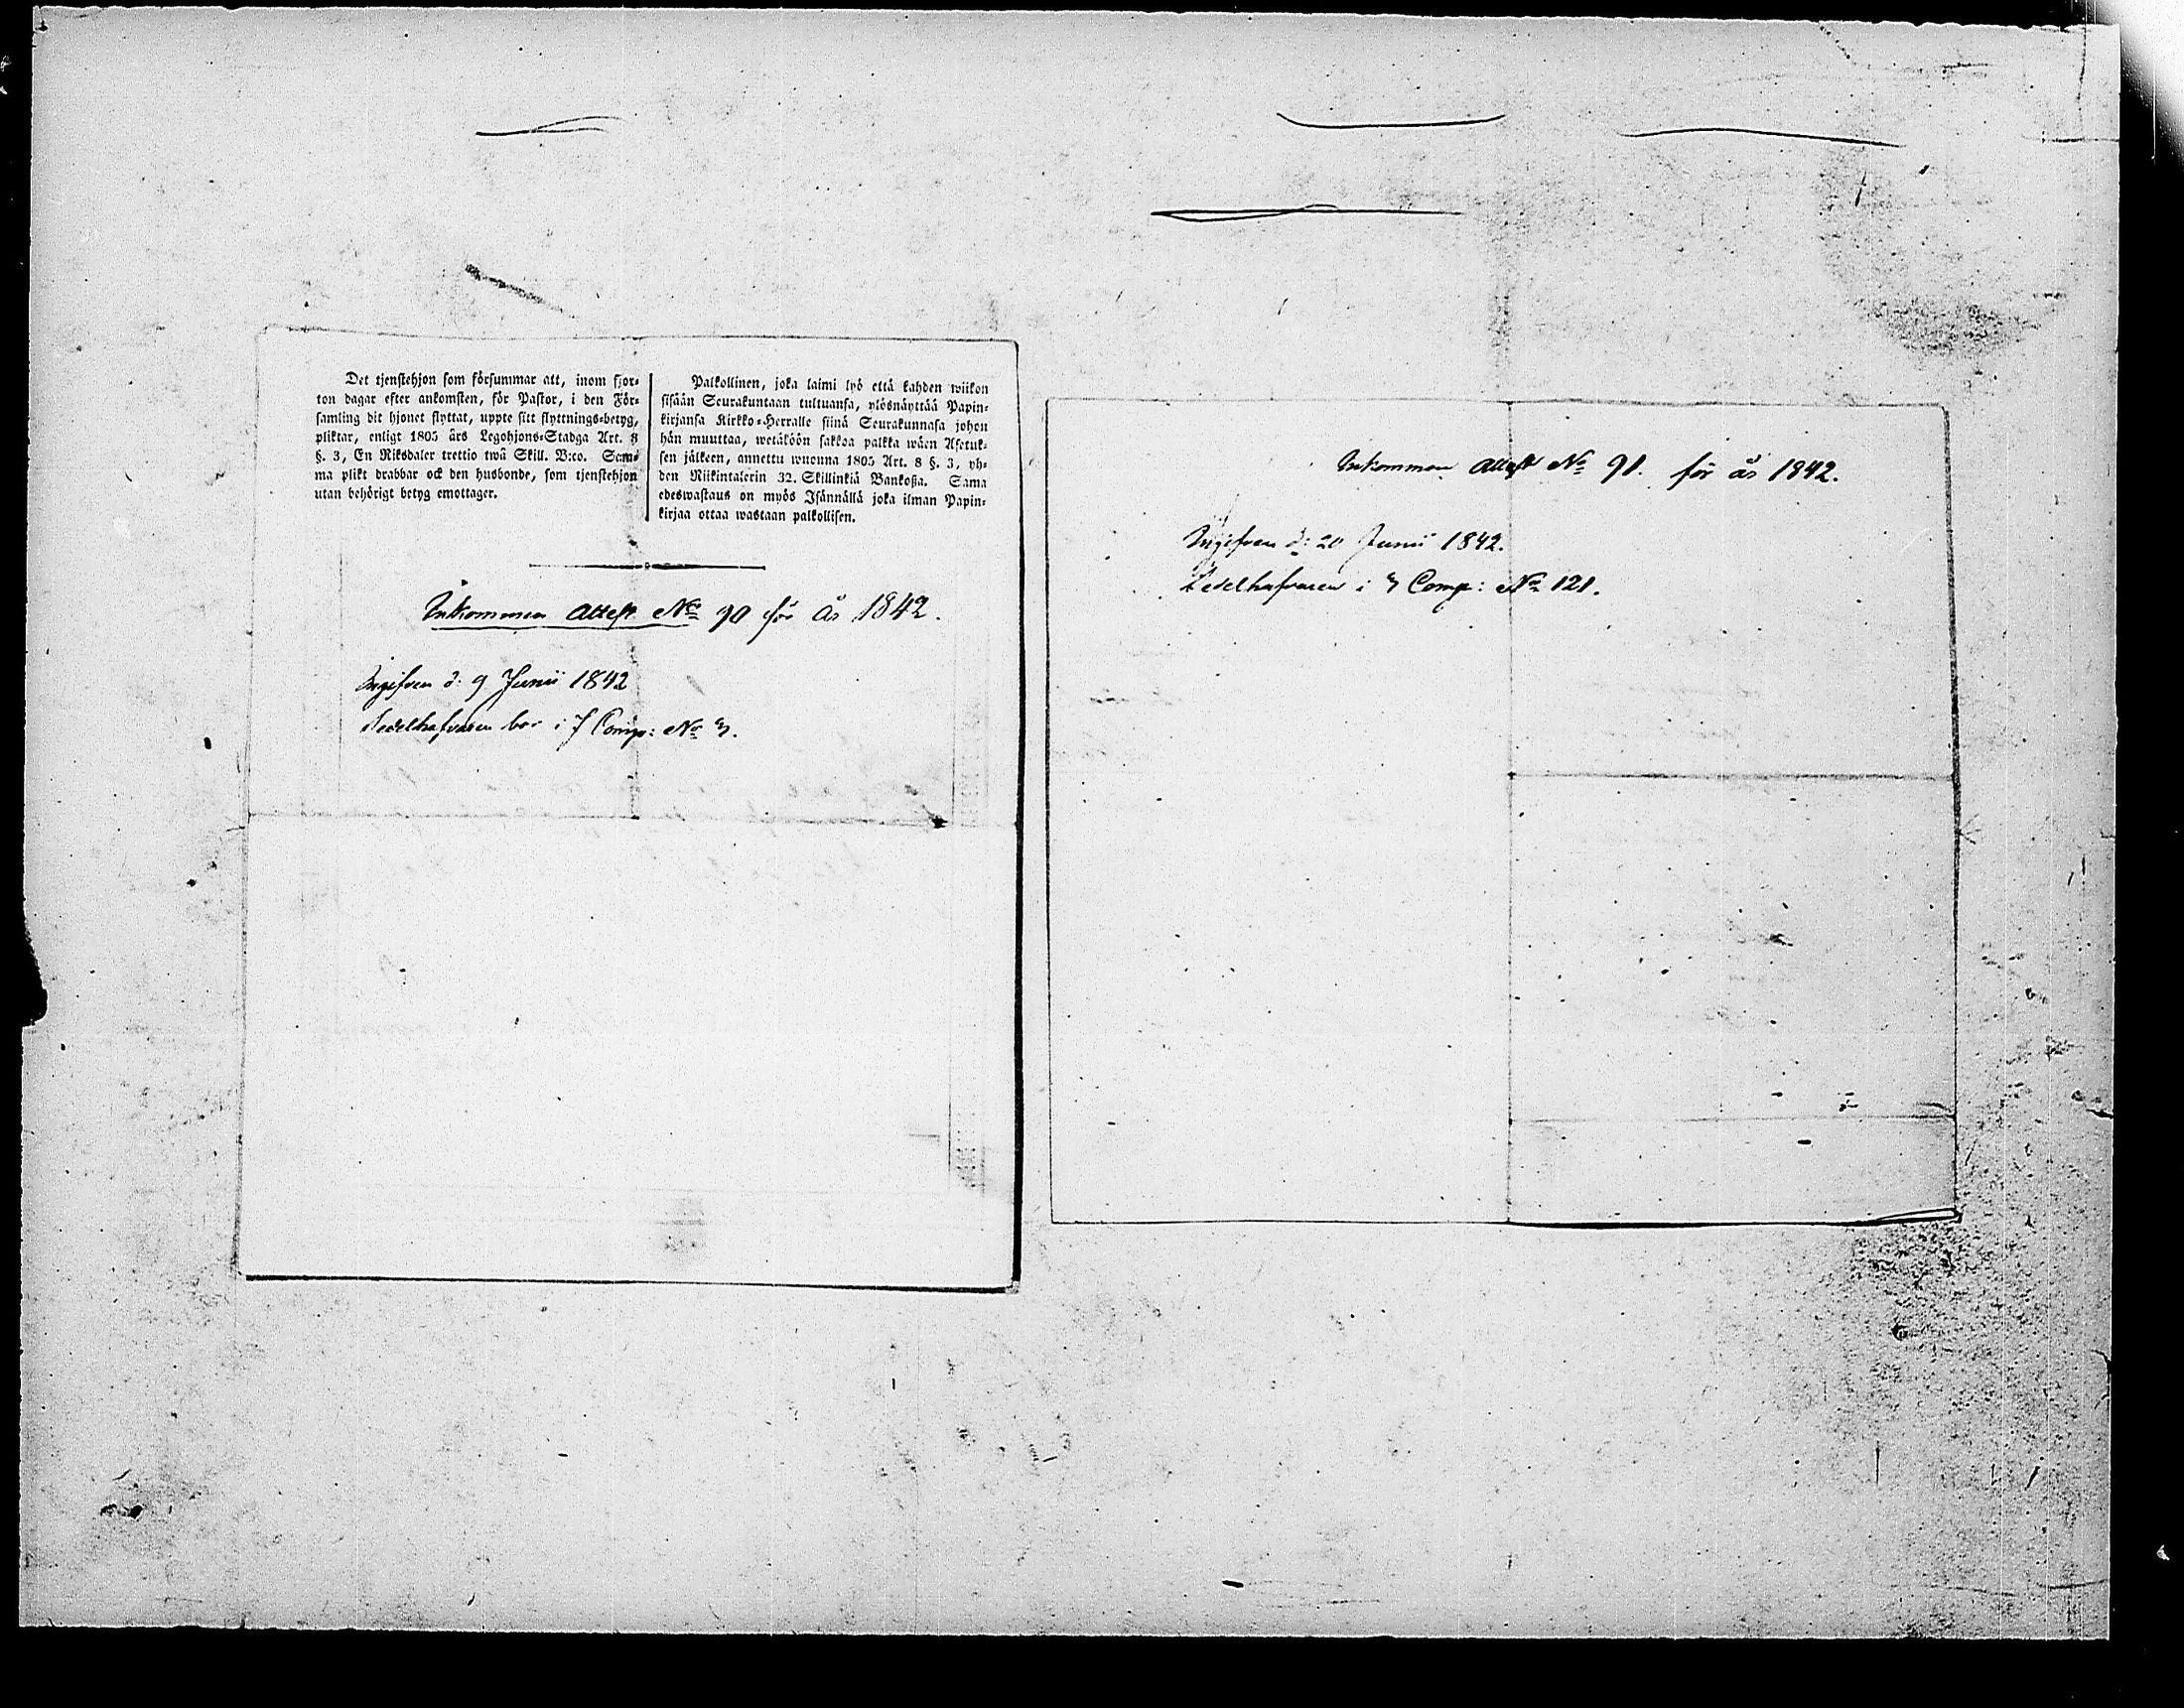 Det tjenstehjon som försummar att, inom fjor-
ton dagar efter ankomsten, för Pastor, i den För-
samling dit hjonet flyttat, uppte sitt flyttnings-betyg,
pliktar, enligt 1805 års Legohjons-Stadga Art. 8
§. 3, En Riksdaler trettio twå Skill. B:co. Sam-
ma plikt drabbar ock den husbonde, som tjenstehjon
utan behörigt betyg emottager.
Palkollinen, joka laimi lyö että kahden wiikon
sisään Seurakuntaan tultuansa, ylösnäyttää Papin-
kirjansa Kirkko-Herralle siinä Seurakunnasa johon
hän muuttaa, wetäköön sakkoa palkka wäen Asetuk-
sen jälkeen, annettu wuonna 1805 Art. 8 §. 3, yh-
den Riikintalerin 32. Skillinkiä Bankoßa. Sama
edeswastaus on myös Isännällä joka ilman Papin-
kirjaa ottaa wastaan palkollisen.
Inkommen Attest No 90 för År 1842.
Ingifven d: 9 Junii 1842
Sedelhafvaren bor i 7 Comp: No 3.
Inkommen Attest No 91. för år 1842.
Ingifven d: 20 Junii 1842.
Sedelhafvaren i 3 Comp: No 121.